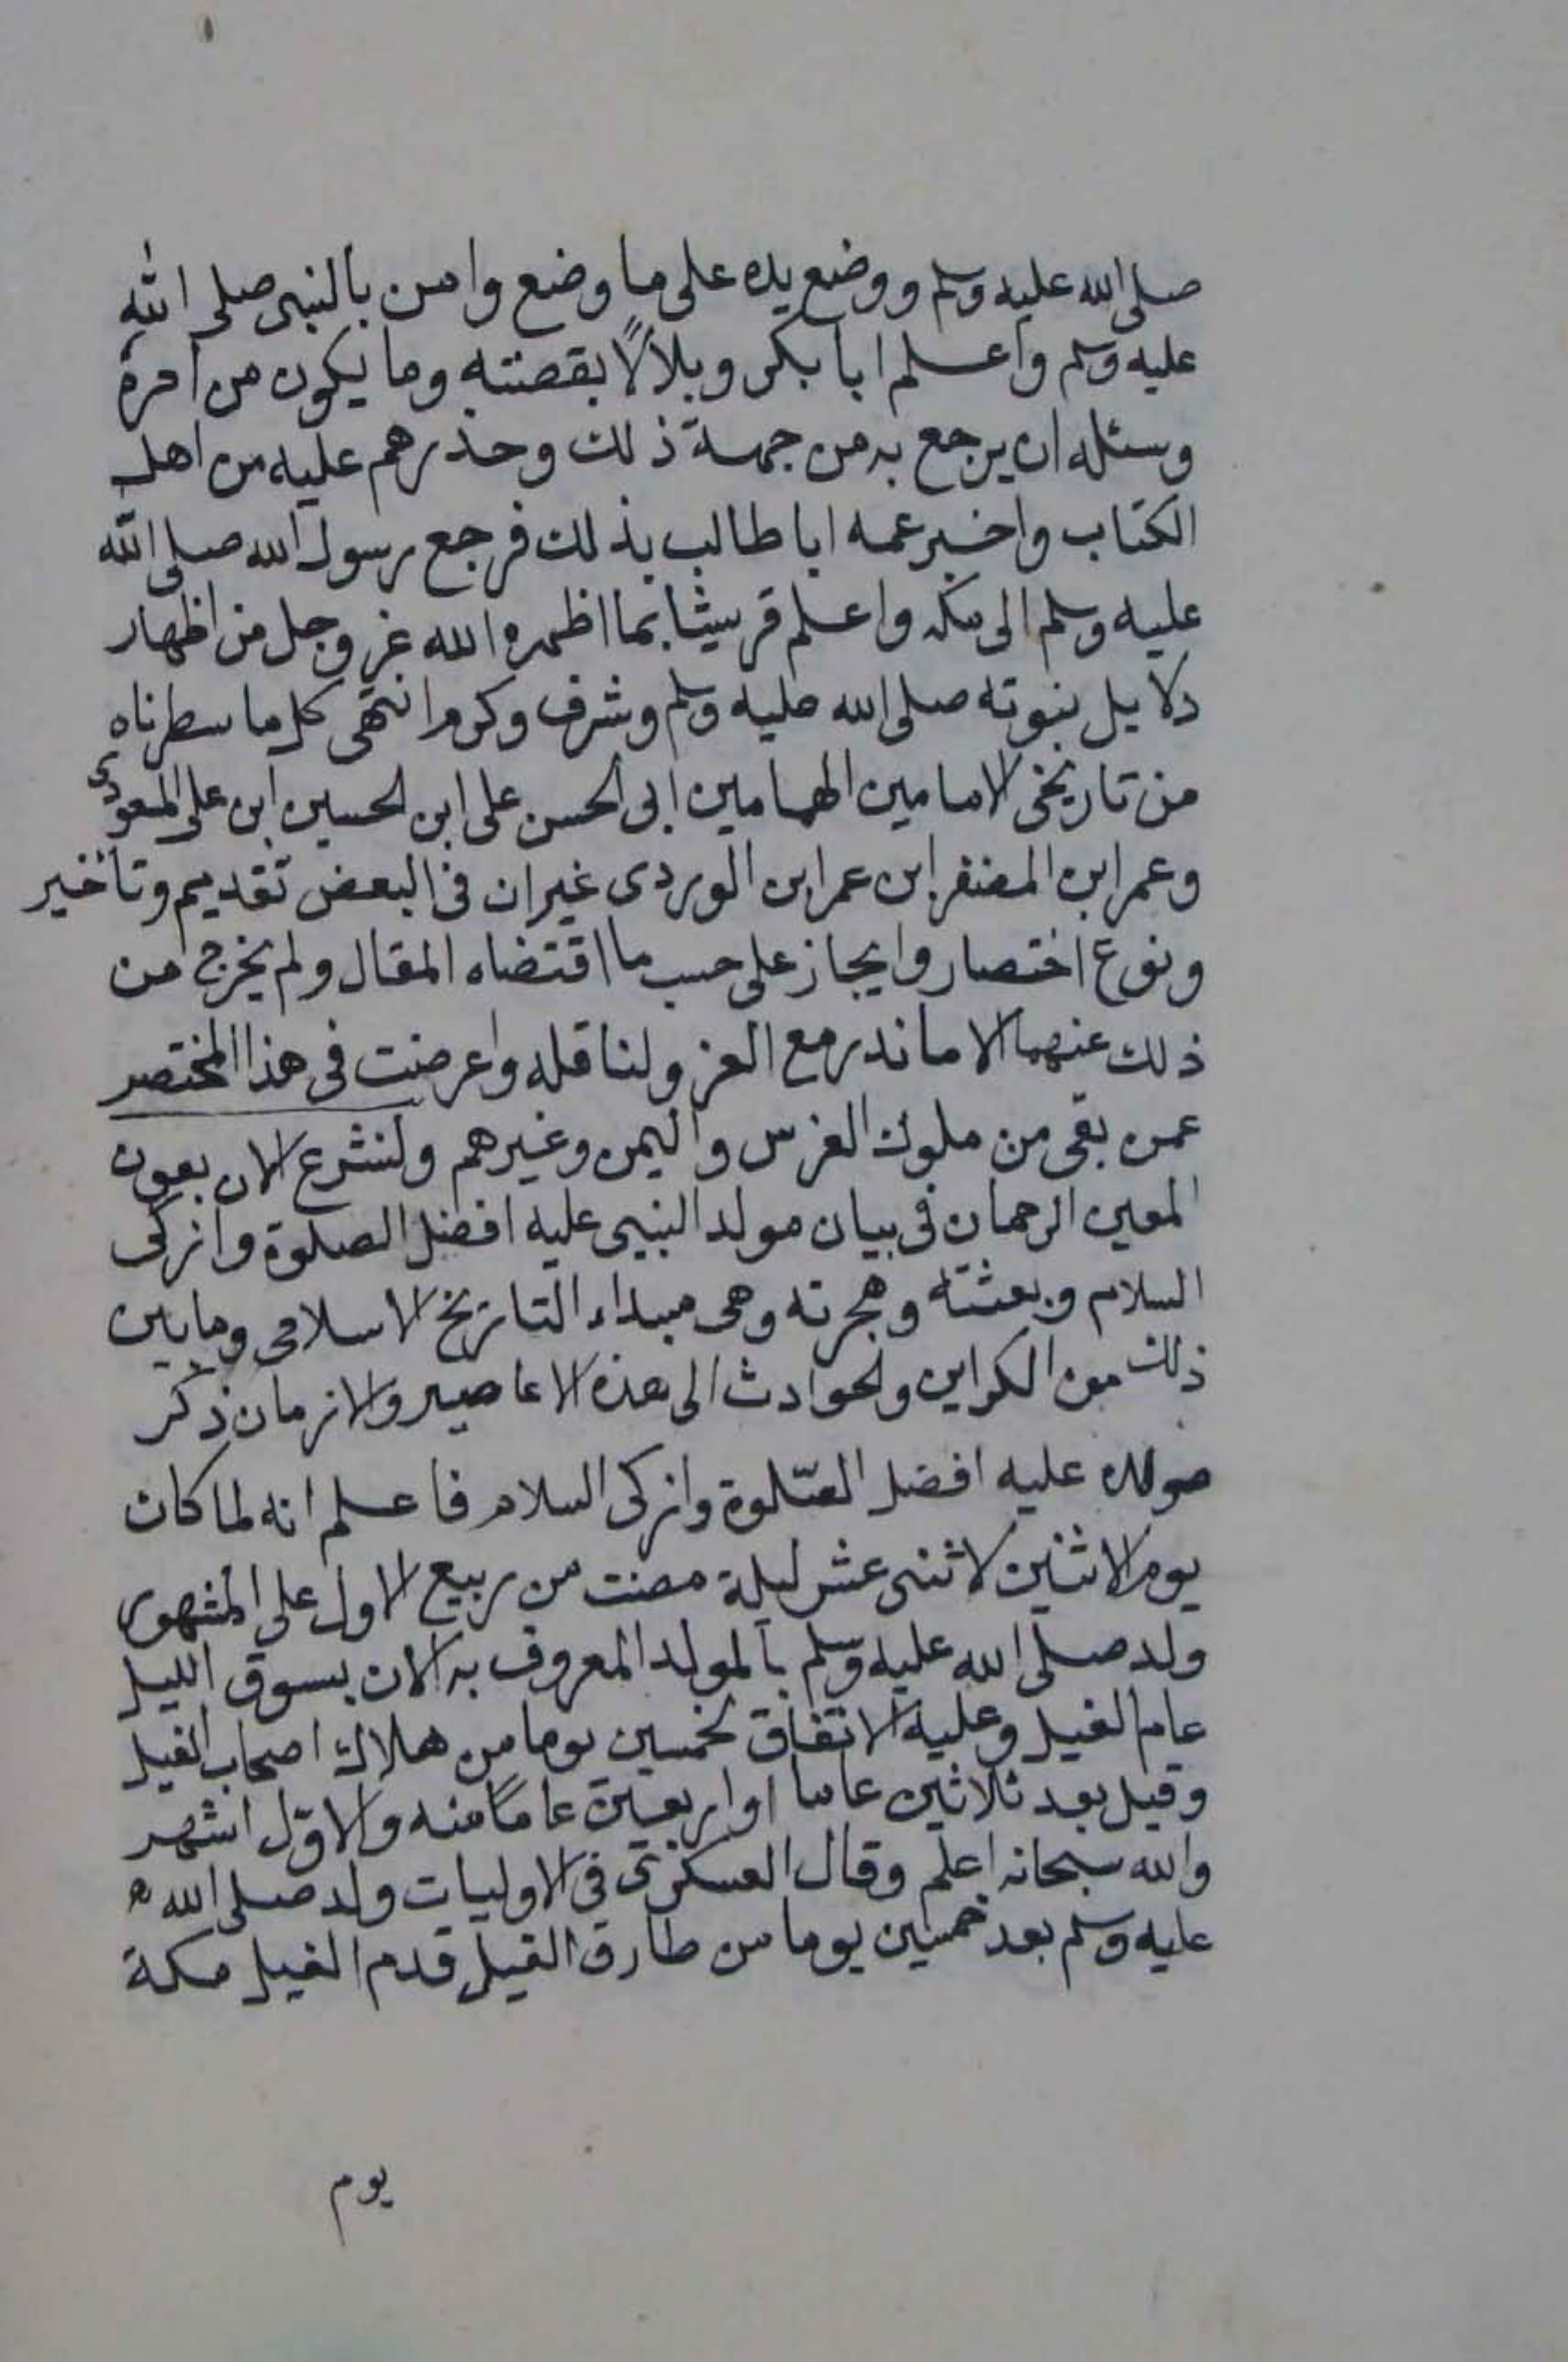 صلى الله عليه وسلم ووضع يده على ما وضع وامن بالنبى صلى الله
عليه وسلم واعلم ابا بكر وبلالاً بقصته وما يكون من امره
وسئله ان يرجع به من جهة ذلك وحذرهم عليه من اهل
الكتاب واخبر عمه ابا طالب بذلك فرجع رسول الله صلى الله
عليه وسلم الى مكه واعلم قريشا بما اظهره الله عز وجل من اظهار
دلايل نبوته صلى الله عليه وسلم وشرف وكرم انتهى كل ما سطرناه
من تاريخى الامامين الهمامين ابى الحسن على ابن الحسين ابن على المسعودى
وعمر ابن المضفر ابن عمر ابن الوردى غير ان فى البعض تقديم وتأخير
ونوع اختصار وايجاز على حسب ما اقتضاه المقال ولم يخرج من
ذلك عنهما الا ما ندر مع العزو لناقله واعرضت فى هذا المختصر
عمن بقى من ملوك الفرس واليمن وغيرهم ولنشرع الان بعون
المعين الرحمان فى بيان مولد النبى عليه افضل الصلوة وازكى
السلام وبعثته وهجرته وهى مبداء التاريخ الاسلامى وما بين
ذلك من الكراين والحوادث الى هذه الاعاصير والازمان ذكر
مولده عليه افضل الصّلوة وازكى السلام فاعلم انه لما كان
يوم الاثنين لاثنى عشر ليلة مضت من ربيع الاول على المشهور
ولد صلى الله عليه وسلم بالمولد المعروف به الان بسوق الليل
عام الفيل وعليه الاتفاق لخمسين يوما من هلاك اصحاب الفيل
وقيل بعد ثلاثين عاما او اربعين عاماً منه والاوّل اشهر
والله سبحانه اعلم وقال العسكرى فى الاوليات ولد صلى الله
عليه وسلم بعد خمسين يوما من طارق الفيل قدم الفيل مكة
يوم